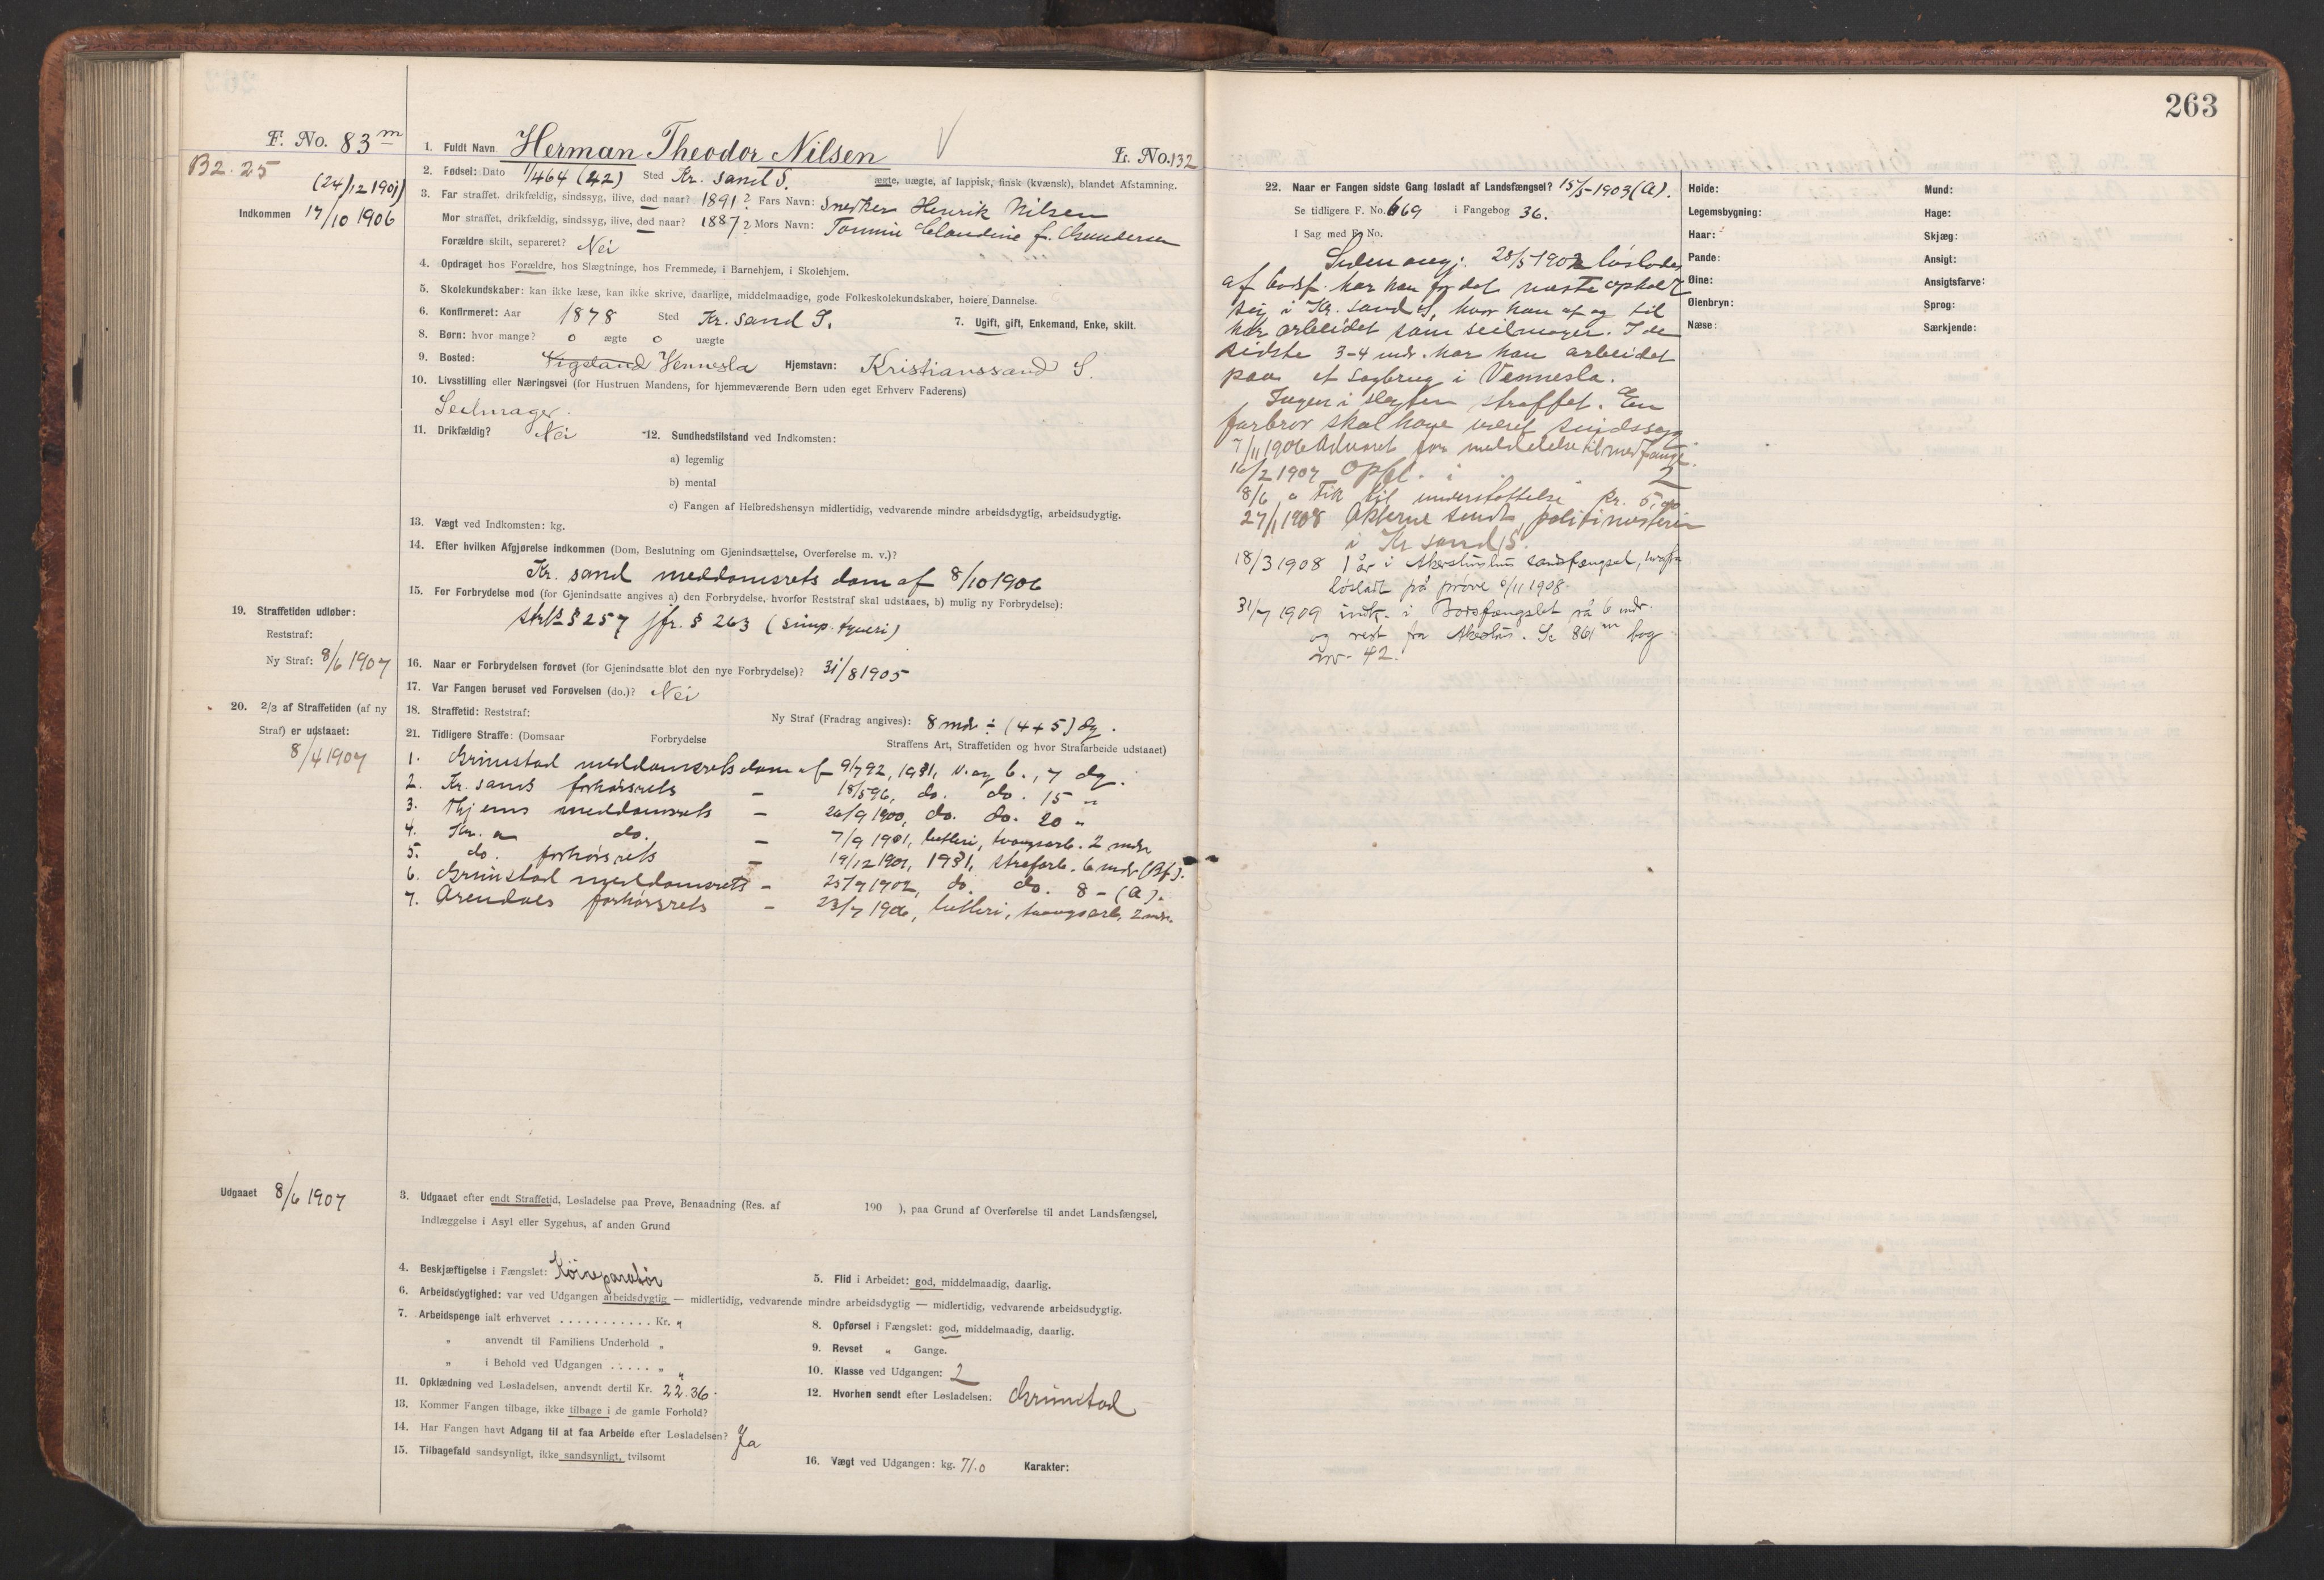 263
F. No. 83 m
B2. 25
(24/12 1901)
Indkommen 17/10 1906
1. Fuldt Navn Herman Theodor Nilsen V Fr. No. 132
2. Fødsel: Dato 1/4 64 (42) Sted Kr. sand S. ægte, uægte, af lappisk, finsk (kvænsk), blandet Afstamning.
3. Far straffet, drikfældig, sindssyg, ilive, død naar? 1891? Fars Navn: Snedker Henrik Nilsen
Mor straffet, drikfældig, sindssyg, ilive, død naar? 1887? Mors Navn: Tommine Claudine f. Gundersen
Forældre skilt, separeret? Nei
4. Opdraget hos Forældre, hos Slægtninge, hos Fremmede, i Barnehjem, i Skolehjem.
5. Skolekundskaber: kan ikke læse, kan ikke skrive, daarlige, middelmaadige, gode Folkeskolekundskaber, høiere Dannelse.
6. Konfirmeret: Aar 1878 Sted Kr. sand S. 7. Ugift, gift, Enkemand, Enke, skilt.
8. Børn: hvor mange? 0 ægte 0 uægte
9. Bosted: Vigeland Vennesla Hjemstavn: Kristianssand S.
10. Livsstilling eller Næringsvei (for Hustruen Mandens, for hjemmeværende Børn uden eget Erhverv Faderens)
Seilmager.
11. Drikfældig? Nei 12. Sundhedstilstand ved Indkomsten:
a) legemlig
b) mental
c) Fangen af Helbredshensyn midlertidig, vedvarende mindre arbeidsdygtig, arbeidsudygtig.
13. Vægt ved Indkomsten: kg.
14. Efter hvilken Afgjørelse indkommen (Dom, Beslutning om Gjenindsættelse, Overførelse m. v.)?
Kr. sand meddomsrets dom af 8/10 1906
15. For Forbrydelse mod (for Gjenindsatte angives a) den Forbrydelse, hvorfor Reststraf skal udstaaes, b) mulig ny Forbrydelse):
strl. § 257 jfr. § 263 (simp. tyveri)
19. Straffetiden udløber:
Reststraf:
Ny Straf: 8/6 1907
16. Naar er Forbrydelsen forøvet (for Gjenindsatte blot den nye Forbrydelse)? 31/8 1905
17. Var Fangen beruset ved Forøvelsen (do.)? Nei
20. 2/3 af Straffetiden (af ny Straf) er udstaaet:
8/4 1907
18. Straffetid: Reststraf: Ny Straf (Fradrag angives): 8 mdr ÷ (4 + 5) dg.
21. Tidligere Straffe: (Domsaar Forbrydelse Straffens Art, Straffetiden og hvor Strafarbeide udstaaet)
1. Grimstad meddomsrets dom af 9/7 92, 1931, v. og b., 7 dg.
2. Kr. sands forhørsrets — 18/5 96, do. do. 15 "
3. Thjems meddomsrets — 26/9 1900, do. do. 20 "
4. Kr. a do. — 7/9 1901, betleri, tvangsarb. 2 mdr
5. do. forhørsrets — 19/12 1901, 1931, strafarb. 6 mdr (Bf).
6. Grimstad meddomsrets — 25/9 1902, do. do. 8 - (A).
7. Arendals forhørsrets — 23/7 1906, betleri, tvangsarb. 2 mdr.
Udgaaet 8/6 1907
3. Udgaaet efter endt Straffetid, Løsladelse paa Prøve, Benaadning (Res. af 190 ), paa Grund af Overførelse til andet Landsfængsel,
Indlæggelse i Asyl eller Sygehus, af anden Grund
4. Beskjæftigelse i Fængslet: 5. Flid i Arbeidet: god, middelmaadig, daarlig.
6. Arbeidsdygtighed: var ved Udgangen arbeidsdygtig — midlertidig, vedvarende mindre arbeidsdygtig — midlertidig, vedvarende arbeidsudygtig.
7. Arbeidspenge ialt erhvervet . . . . . . . . . . . Kr. "
8. Opførsel i Fængslet: god, middelmaadig, daarlig.
" anvendt til Familiens Underhold "
9. Revset " Gange.
" i Behold ved Udgangen . . . . . "
10. Klasse ved Udgangen: 2
11. Opklædning ved Løsladelsen, anvendt dertil Kr. 22.36.
12. Hvorhen sendt efter Løsladelsen: Grimstad
13. Kommer Fangen tilbage, ikke tilbage i de gamle Forhold?
14. Har Fangen havt Adgang til at faa Arbeide efter Løsladelsen? Ja
15. Tilbagefald sandsynligt, ikke sandsynligt, tvilsomt
16. Vægt ved Udgangen: kg. 71.0 Karakter:
22. Naar er Fangen sidste Gang løsladt af Landsfængsel? 15/5 1903 (A).
Se tidligere F. No. 669 i Fangebog 36.
I Sag med F. No.
Siden 28/5 1902 løslades
af bodsf. har han for det meste opholdt
sig i Kr. sand S, hvor han af og til
har arbeidet som seilmager. I de
sidste 3-4 mdr. har han arbeidet
paa et sagbrug i Vennesla.
Ingen i slegten straffet. En
farbror skal have været sindssyg.
7/11 1906 Advaret for meddelelse til medfange.
16/2 1907 Opfl. i 2
8/6 " Fik til understøttelse Kr. 5,00
27/1 1908 Akterne sendt politimesteren
i Kr sand S.
18/3 1908 1 år i Akershus landsfængsel, hvorfra
løsladt på prøve 6/11 1908.
31/7 1909 indk. i Bodsfængslet på 6 mdr.
og rest fra Akershus. Se 861 m bog
nr. 42.
Høide:
Legemsbygning:
Haar:
Pande:
Øine:
Øienbryn:
Næse:
Mund:
Hage:
Skjæg:
Ansigt:
Ansigtsfarve:
Sprog:
Særkjende: